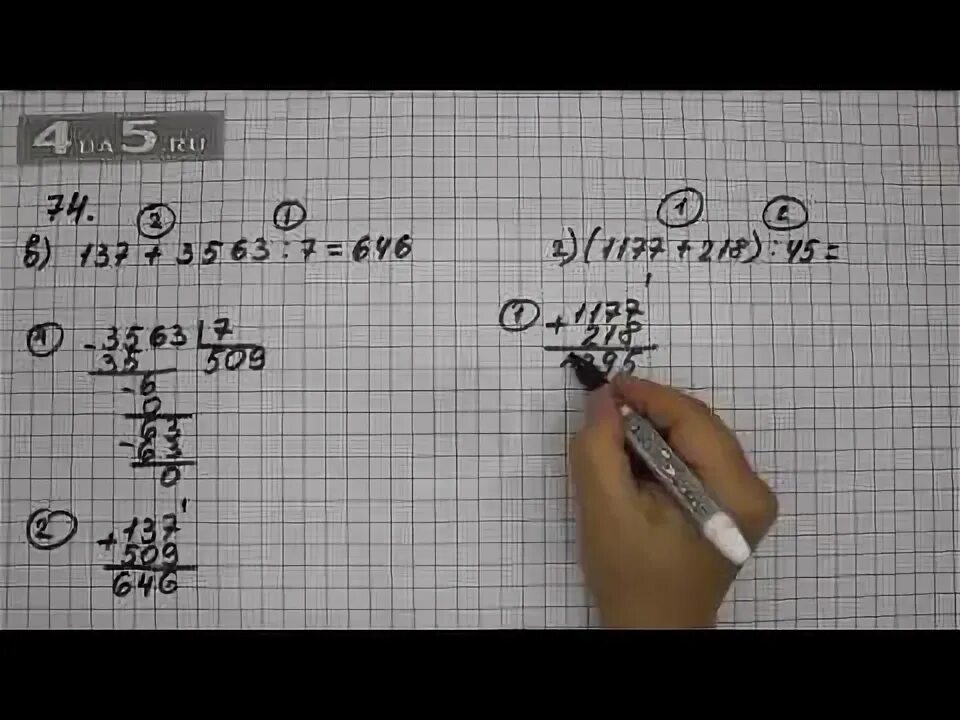 4 на 5.ru
74.
2 1
в) 137 + 3563 : 7 = 646
1
- 3563 | 7
35 509
- 6
0
- 63
63
0
2
1
+ 137
509
646
1 2
г) (1177 + 218) : 45 =
1
1
+ 1177
218
395